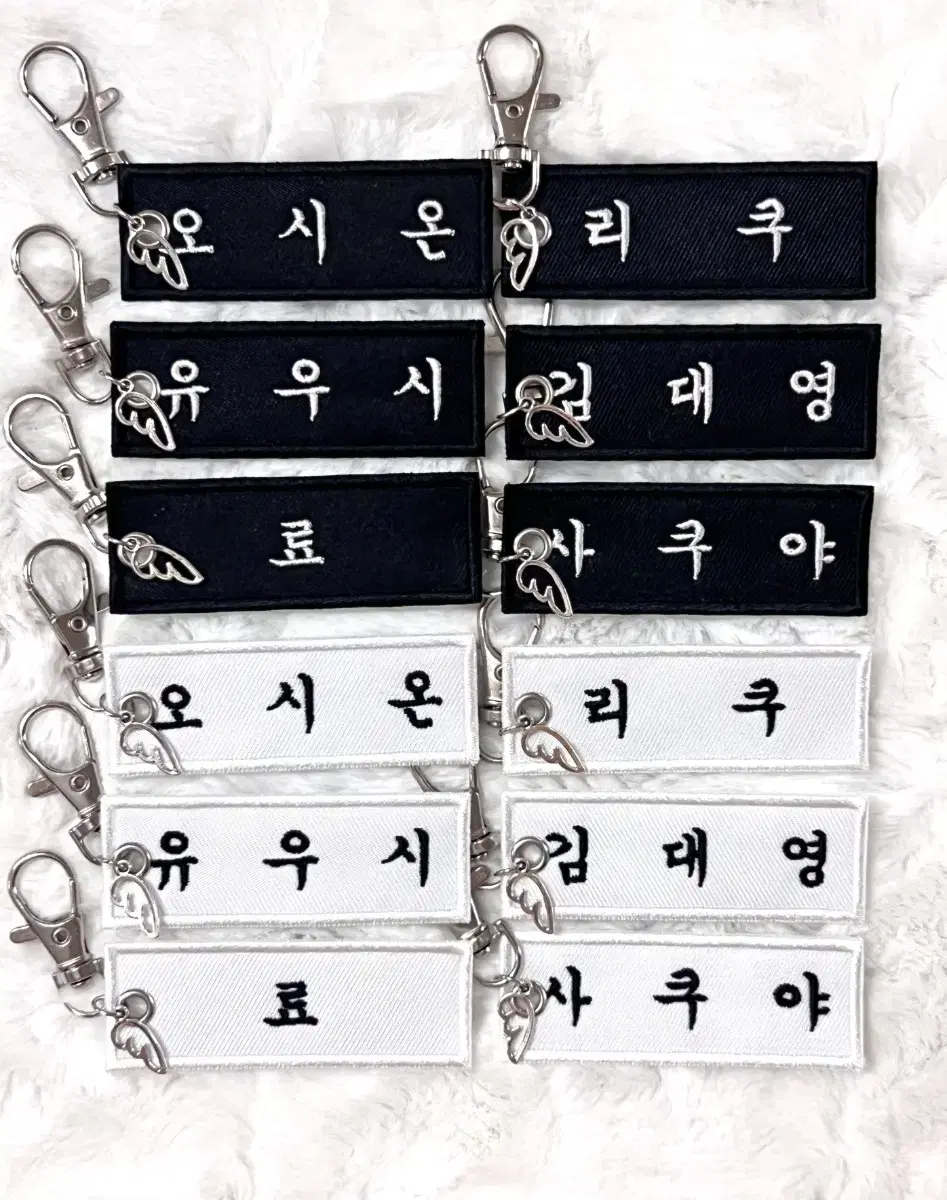 오 시 온
리 쿠
유 우 시
김 대 영
료
사 쿠 야
오 시 온
리 쿠
유 우 시
김 대 영
료
사 쿠 야